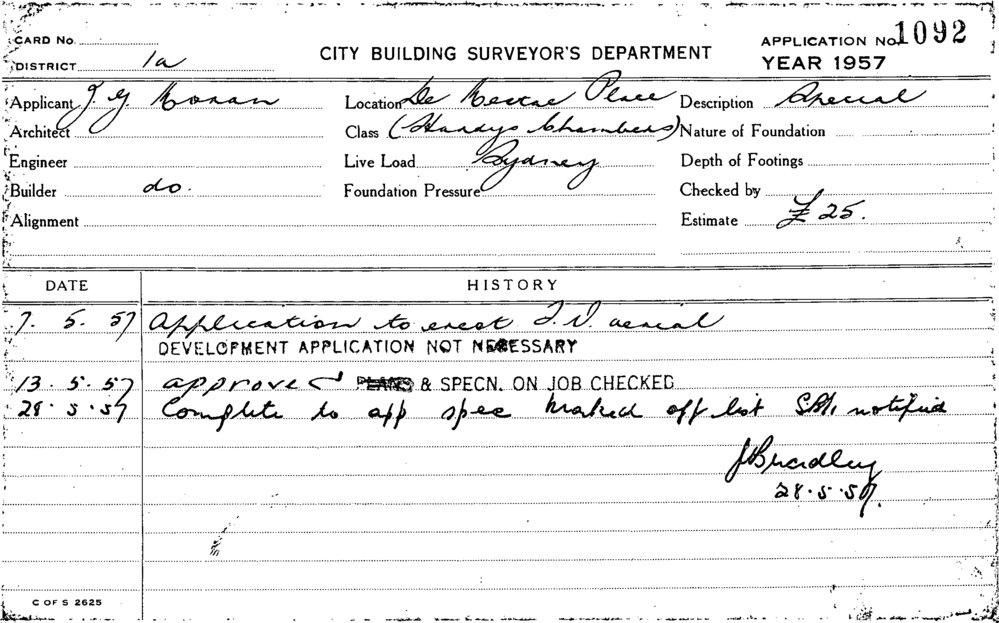 CARD No. CITY BUILDING SURVEYOR'S DEPARTMENT APPLICATION No. 1092
DISTRICT 1a YEAR 1957
Applicant J. G. Location De Place Description Special
Architect Class (Hardys Chambers) Nature of Foundation
Engineer Live Load Sydney Depth of Footings
Builder do. Foundation Pressure Checked by
Alignment Estimate £25.
DATE HISTORY
7. 5. 57 Application to erect T.V. aerial
DEVELOPMENT APPLICATION NOT NECESSARY
13. 5. 57 approved PLANS & SPECN. ON JOB CHECKED
28. 5. 57 Complete to app spec marked off list notified
Bradley
28.5.57.
C OF S 2625